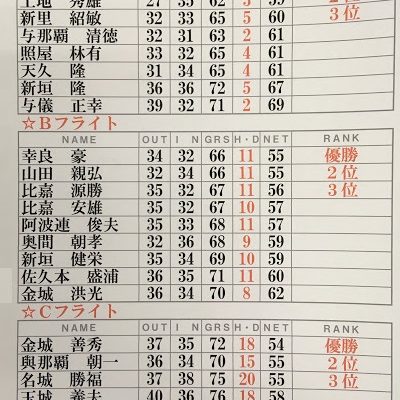 上地 秀雄 27 35 62 3 59 2位
新里 紹敏 32 33 65 5 60 3位
与那覇 清徳 32 31 63 2 61
照屋 林有 33 32 65 4 61
天久 隆 31 34 65 4 61
新垣 隆 36 36 72 5 67
与儀 正幸 39 32 71 2 69
☆Bフライト
NAME OUT I N GRS H・D NET RANK
幸良 豪 34 32 66 11 55 優勝
山田 親弘 32 34 66 11 55 2位
比嘉 源勝 35 32 67 11 56 3位
比嘉 安雄 35 32 67 10 57
阿波連 俊夫 35 33 68 11 57
奥間 朝孝 32 36 68 9 59
新垣 健栄 35 34 69 10 59
佐久本 盛浦 36 35 71 11 60
金城 洪光 36 34 70 8 62
☆Cフライト
NAME OUT I N GRS H・D NET RANK
金城 善秀 37 35 72 18 54 優勝
與那覇 朝一 36 34 70 15 55 2位
名城 勝福 37 38 75 20 55 3位
玉城 義夫 40 36 76 18 58